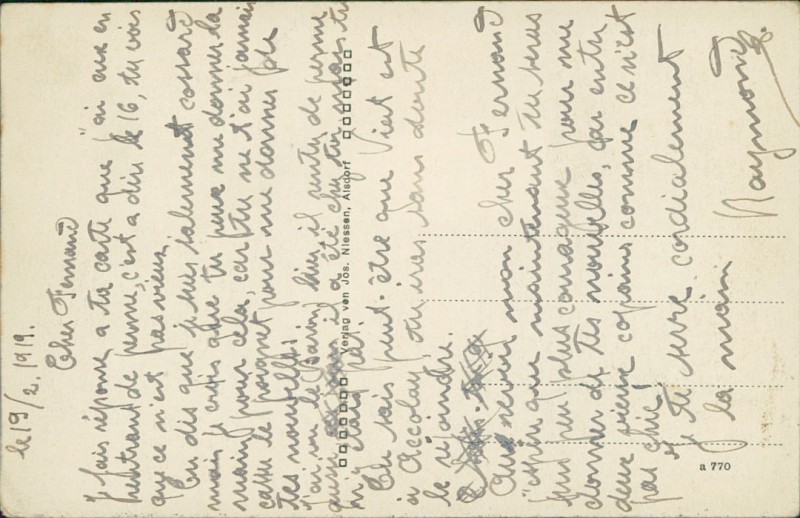 le 19/2. 1919.
Cher Fernand
Je fais réponse a ta carte que j'ai eue en
rentrant de perme, c'est a dire le 16, tu vois
que ce n'est pas vieux.
Tu dis que je suis salement cossard
mais je crois que tu peux me donner la
main pour cela, car tu ne t'ai jamais
cassé le poignet pour me donner de
tes nouvelles.
J'ai vu le Baron, hier, il rentre de perme
il a été chez toi mais tu
n'y étais pas.
Tu sais peut-être que Viat est
à Accolay, tu iras sans doute
le rejoindre.
Au revoir mon cher Fernand
j'espère que maintenant tu seras
un peu plus courageux pour me
donner de tes nouvelles, car entre
deux vieux copains comme ce n'est
pas chic.
Je te serre cordialement
la main
Raymond
Verlag von Jos. Niessen, Alsdorf
a 770